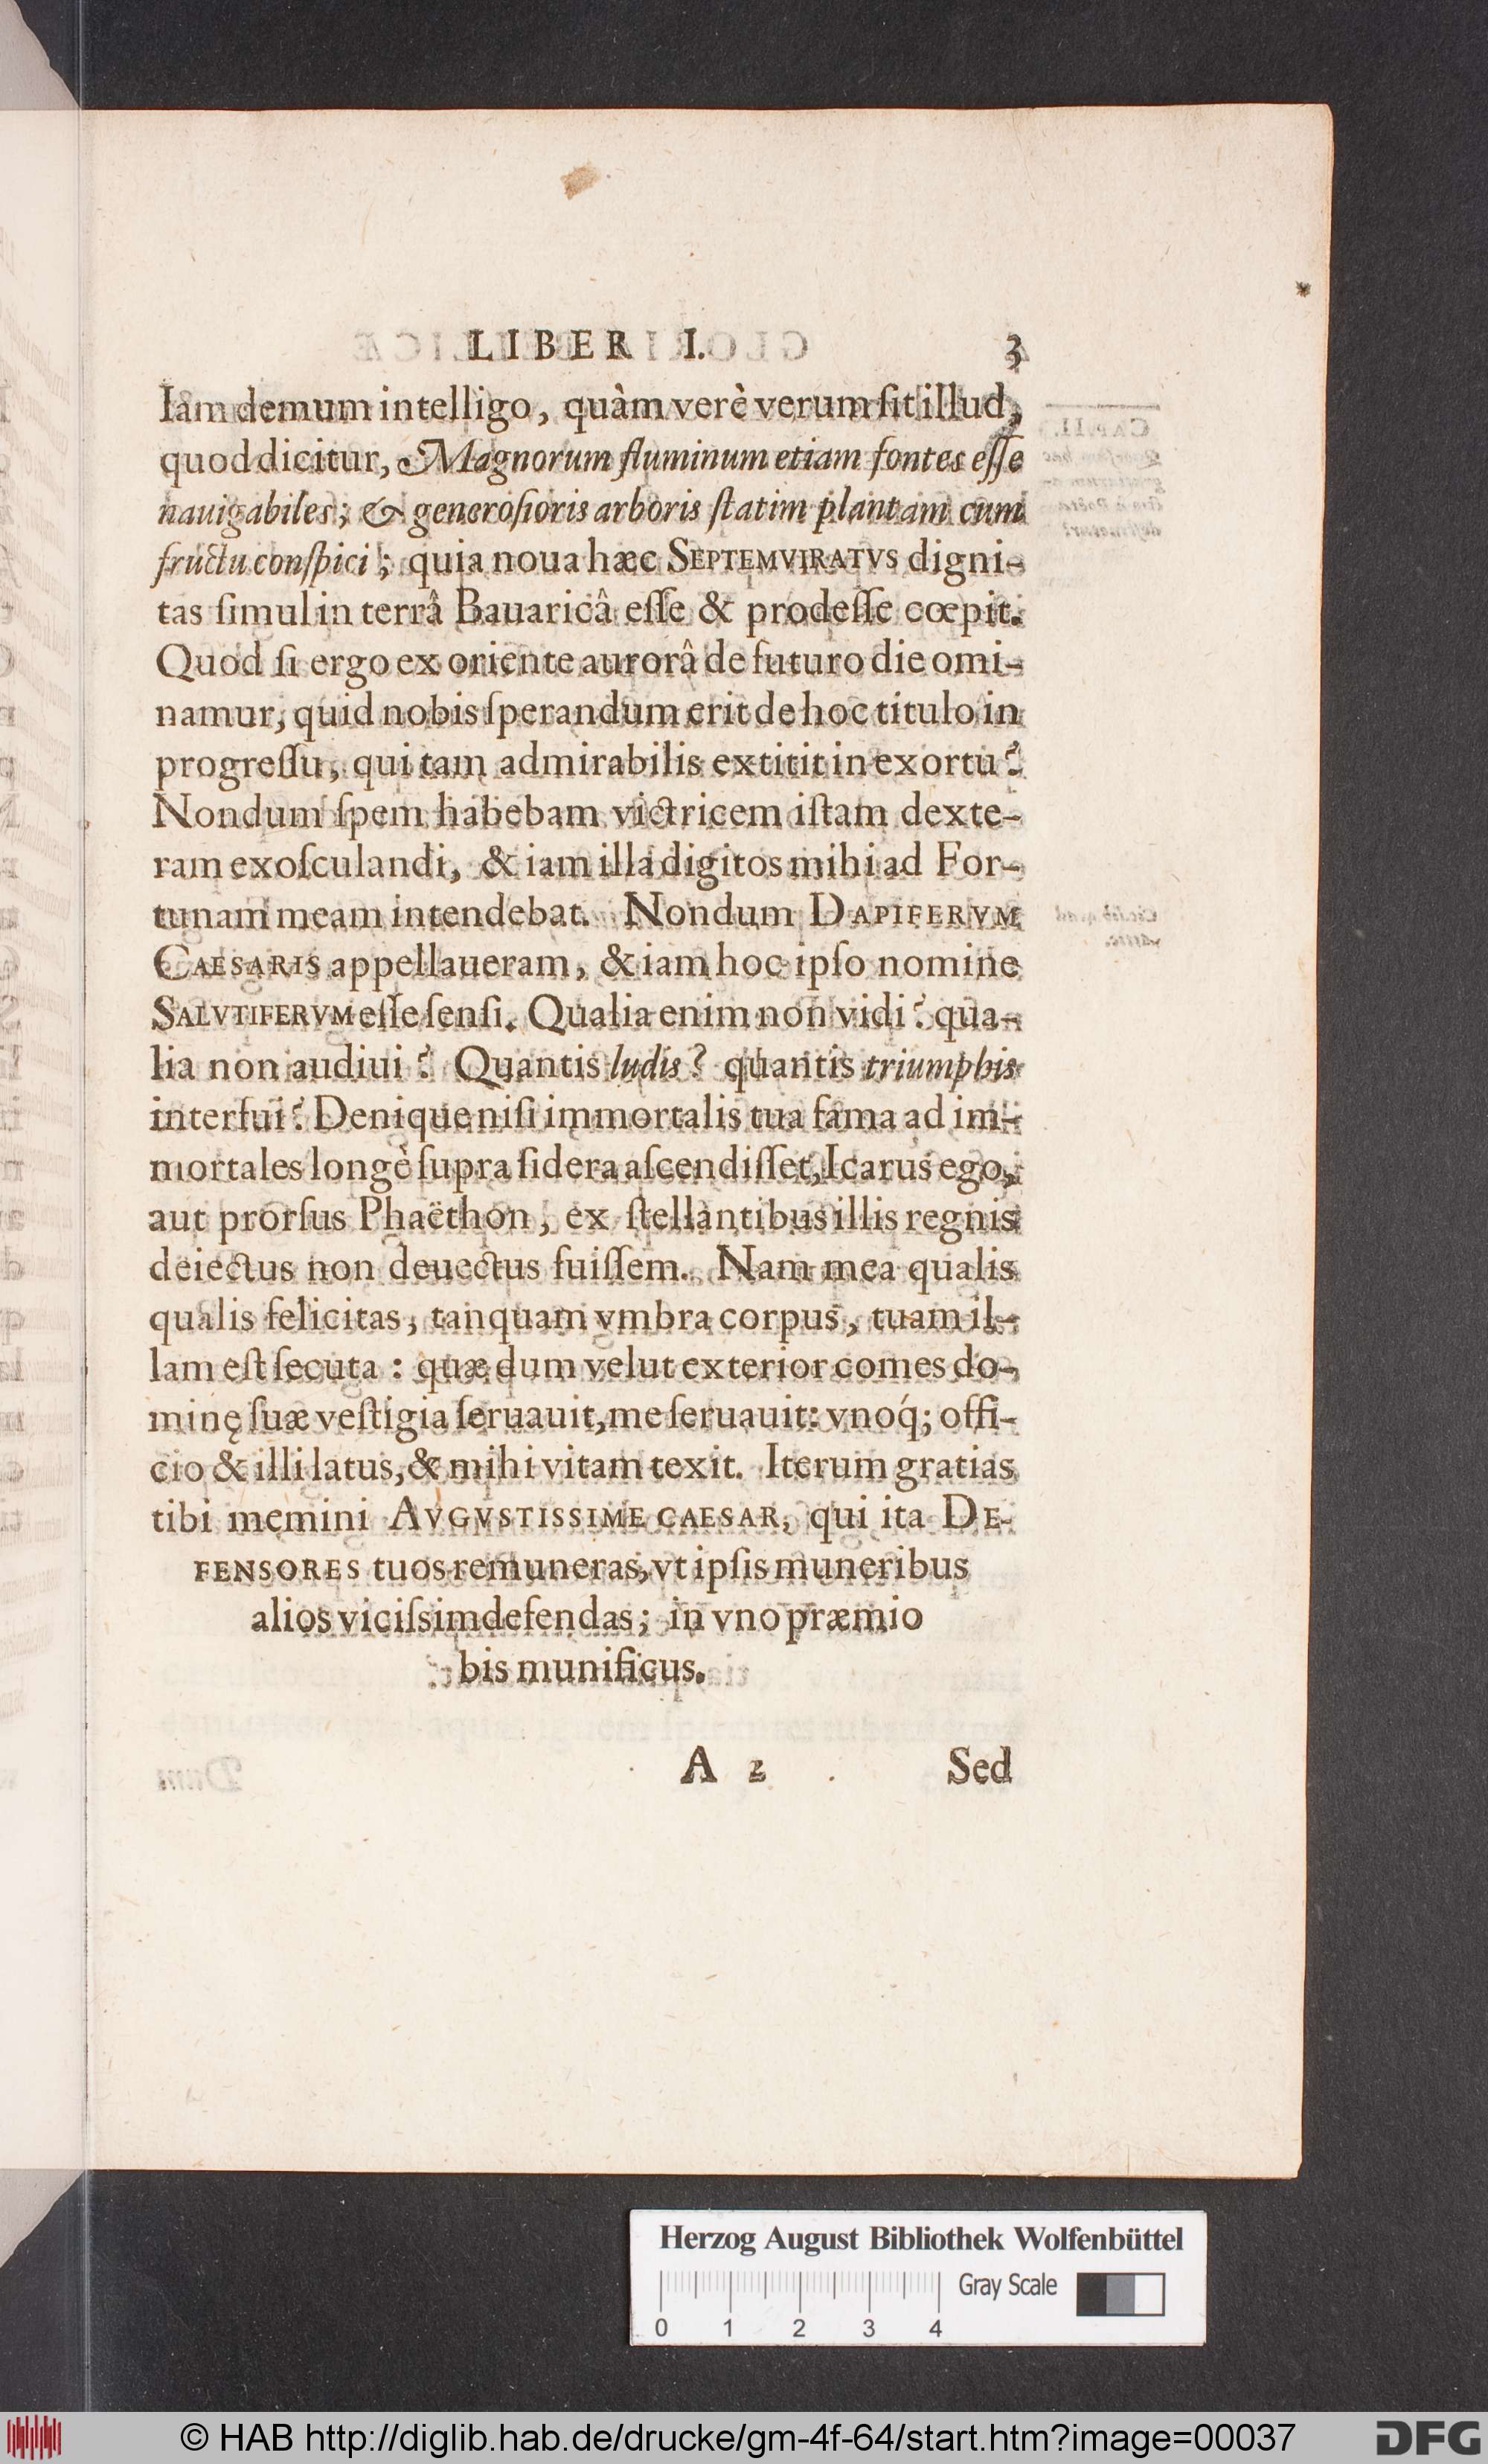 LIBER I. 3
Iam demum intelligo, quàm verè verum ſit illud,
quod dicitur, Magnorum fluminum etiam fontes eſſe
nauigabiles; & generoſioris arboris ſtatim plantam cum
fructu conſpici; quia noua hæc SEPTEMVIRATVS digni-
tas ſimul in terrâ Bauaricâ eſſe & prodeſſe cœpit.
Quod ſi ergo ex oriente aurorâ de futuro die omi-
namur, quid nobis ſperandum erit de hoc titulo in
progreſſu, qui tam admirabilis extitit in exortu?
Nondum ſpem habebam victricem iſtam dexte-
ram exoſculandi, & iam illa digitos mihi ad For-
tunam meam intendebat. Nondum DAPIFERVM
CAESARIS appellaueram, & iam hoc ipſo nomine
SALVTIFERVM eſſe ſenſi. Qualia enim non vidi? qua-
lia non audiui? Quantis ludis? quantis triumphis
interfui? Denique niſi immortalis tua fama ad im-
mortales longè ſupra ſidera aſcendiſſet, Icarus ego,
aut prorſus Phaëthon, ex ſtellantibus illis regnis
deiectus non deuectus fuiſſem. Nam mea qualis
qualis felicitas, tanquam vmbra corpus, tuam il-
lam eſt ſecuta: quæ dum velut exterior comes do-
minę ſuæ veſtigia ſeruauit, me ſeruauit: vnoq́; offi-
cio & illi latus, & mihi vitam texit. Iterum gratias
tibi memini AVGVSTISSIME CAESAR, qui ita DE-
FENSORES tuos remuneras, vt ipſis muneribus
alios viciſsim defendas; in vno præmio
bis munificus.
A 2 Sed
Herzog August Bibliothek Wolfenbüttel
Gray Scale
0 1 2 3 4
© HAB http://diglib.hab.de/drucke/gm-4f-64/start.htm?image=00037 DFG